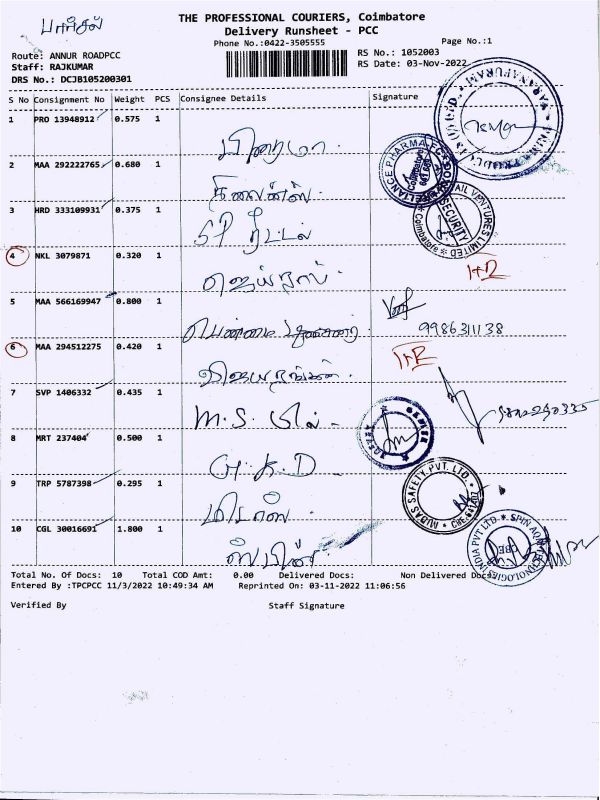 பார்சல்
THE PROFESSIONAL COURIERS, Coimbatore
Delivery Runsheet - PCC
Phone No.:0422-3505555
Page No.:1
Route: ANNUR ROADPCC
RS No.: 1052003
Staff: RAJKUMAR
RS Date: 03-Nov-2022
DRS No.: DCJB105200301
S No Consignment No Weight PCS Consignee Details Signature
1 PRO 13948912 0.575 1
பிரைமா
2 MAA 292222765 0.680 1
ரிலையன்ஸ்
RELIANCE PHARMA
Coimbatore
3 HRD 333109931 0.375 1
SP ரீட்டல்
VENTURES LIMITED
SECURITY
Coimbatore
4 NKL 3079871 0.320 1
5 MAA 566169947 0.800 1
9986311138
6 MAA 294512275 0.420 1
7 SVP 1406332 0.435 1
M.S.
8 MRT 237404 0.500 1
G.K.D
9 TRP 5787398 0.295 1
மிடாஸ்
MIDAS SAFETY PVT. LTD.
10 CGL 30016691 1.800 1
ஸ்பின்
SPIN
TECHNOLOGIES INDIA PVT LTD
CBE
Total No. Of Docs: 10 Total COD Amt: 0.00 Delivered Docs: Non Delivered Docs:
Entered By :TPCPCC 11/3/2022 10:49:34 AM Reprinted On: 03-11-2022 11:06:56
Verified By Staff Signature